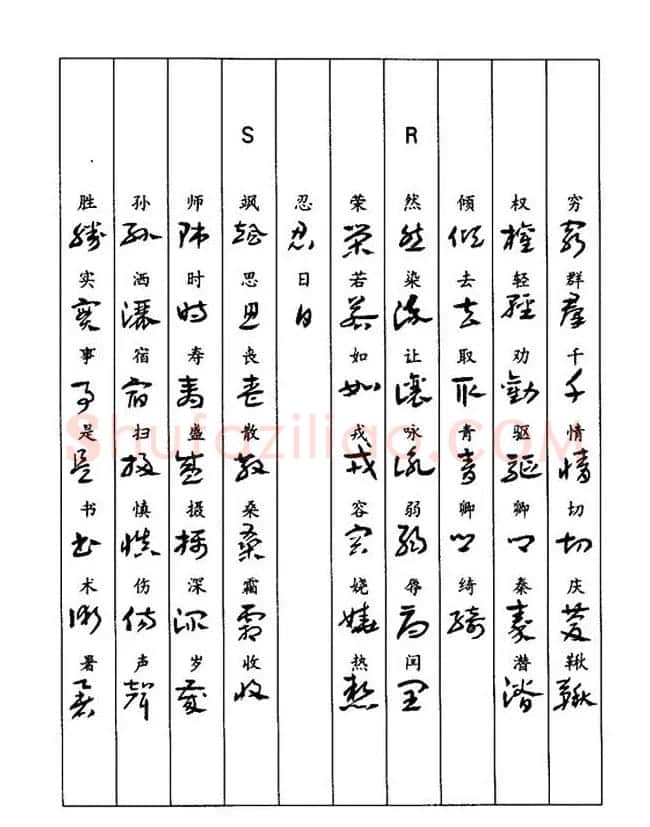 穷 群 千 情 切 庆 鞦
权 轻 劝 驱 卿 秦 潜
倾 去 取 青 卿 绮
R
然 染 让 咏 弱 辱 闰
荣 若 如 戎 容 娆 热
忍 日
S
飒 思 丧 散 桑 霜 收
师 时 寿 盛 摄 深 岁
孙 洒 宿 扫 慎 伤 声
胜 实 事 是 书 术 暑
Shufaziliao.COM